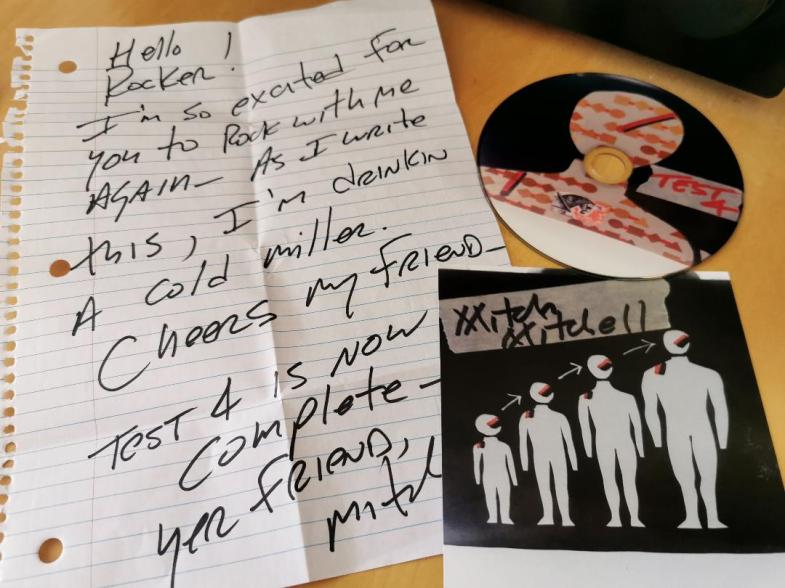 Hello !
Rocker!
I'm so excited for
you to Rock with me
AGAIN— As I write
this, I'm drinkin
A cold miller.
Cheers my friend—
Test 4 is now
Complete—
yer friend,
mitch
TEST
4
Mitch
Mitchell